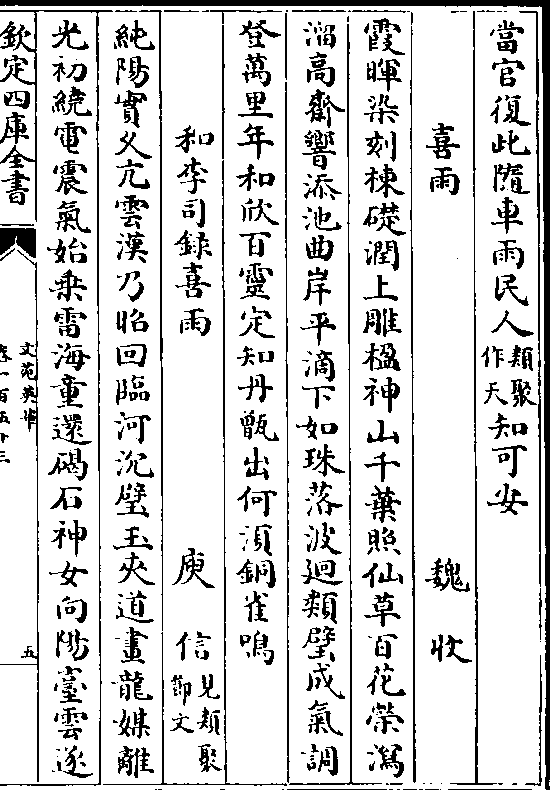 當官復此隨車雨民人類聚作天知可安
喜雨　魏收
霞暉染刻棟礎潤上雕楹神山千葉照仙草百花榮瀉
溜高齋響添池曲岸平滴下如珠落波廻類璧成氣調
登萬里年和欣百靈定知丹甑出何須銅雀鳴
和李司録喜雨　庾信見類聚節文
純陽實久亢雲漢乃昭回臨河沉璧玉夾道畫龍媒離
光初繞電震氣始乗雷海童還碣石神女向陽臺雲逐
欽定四庫全書
文苑英華
卷一百五十三
五